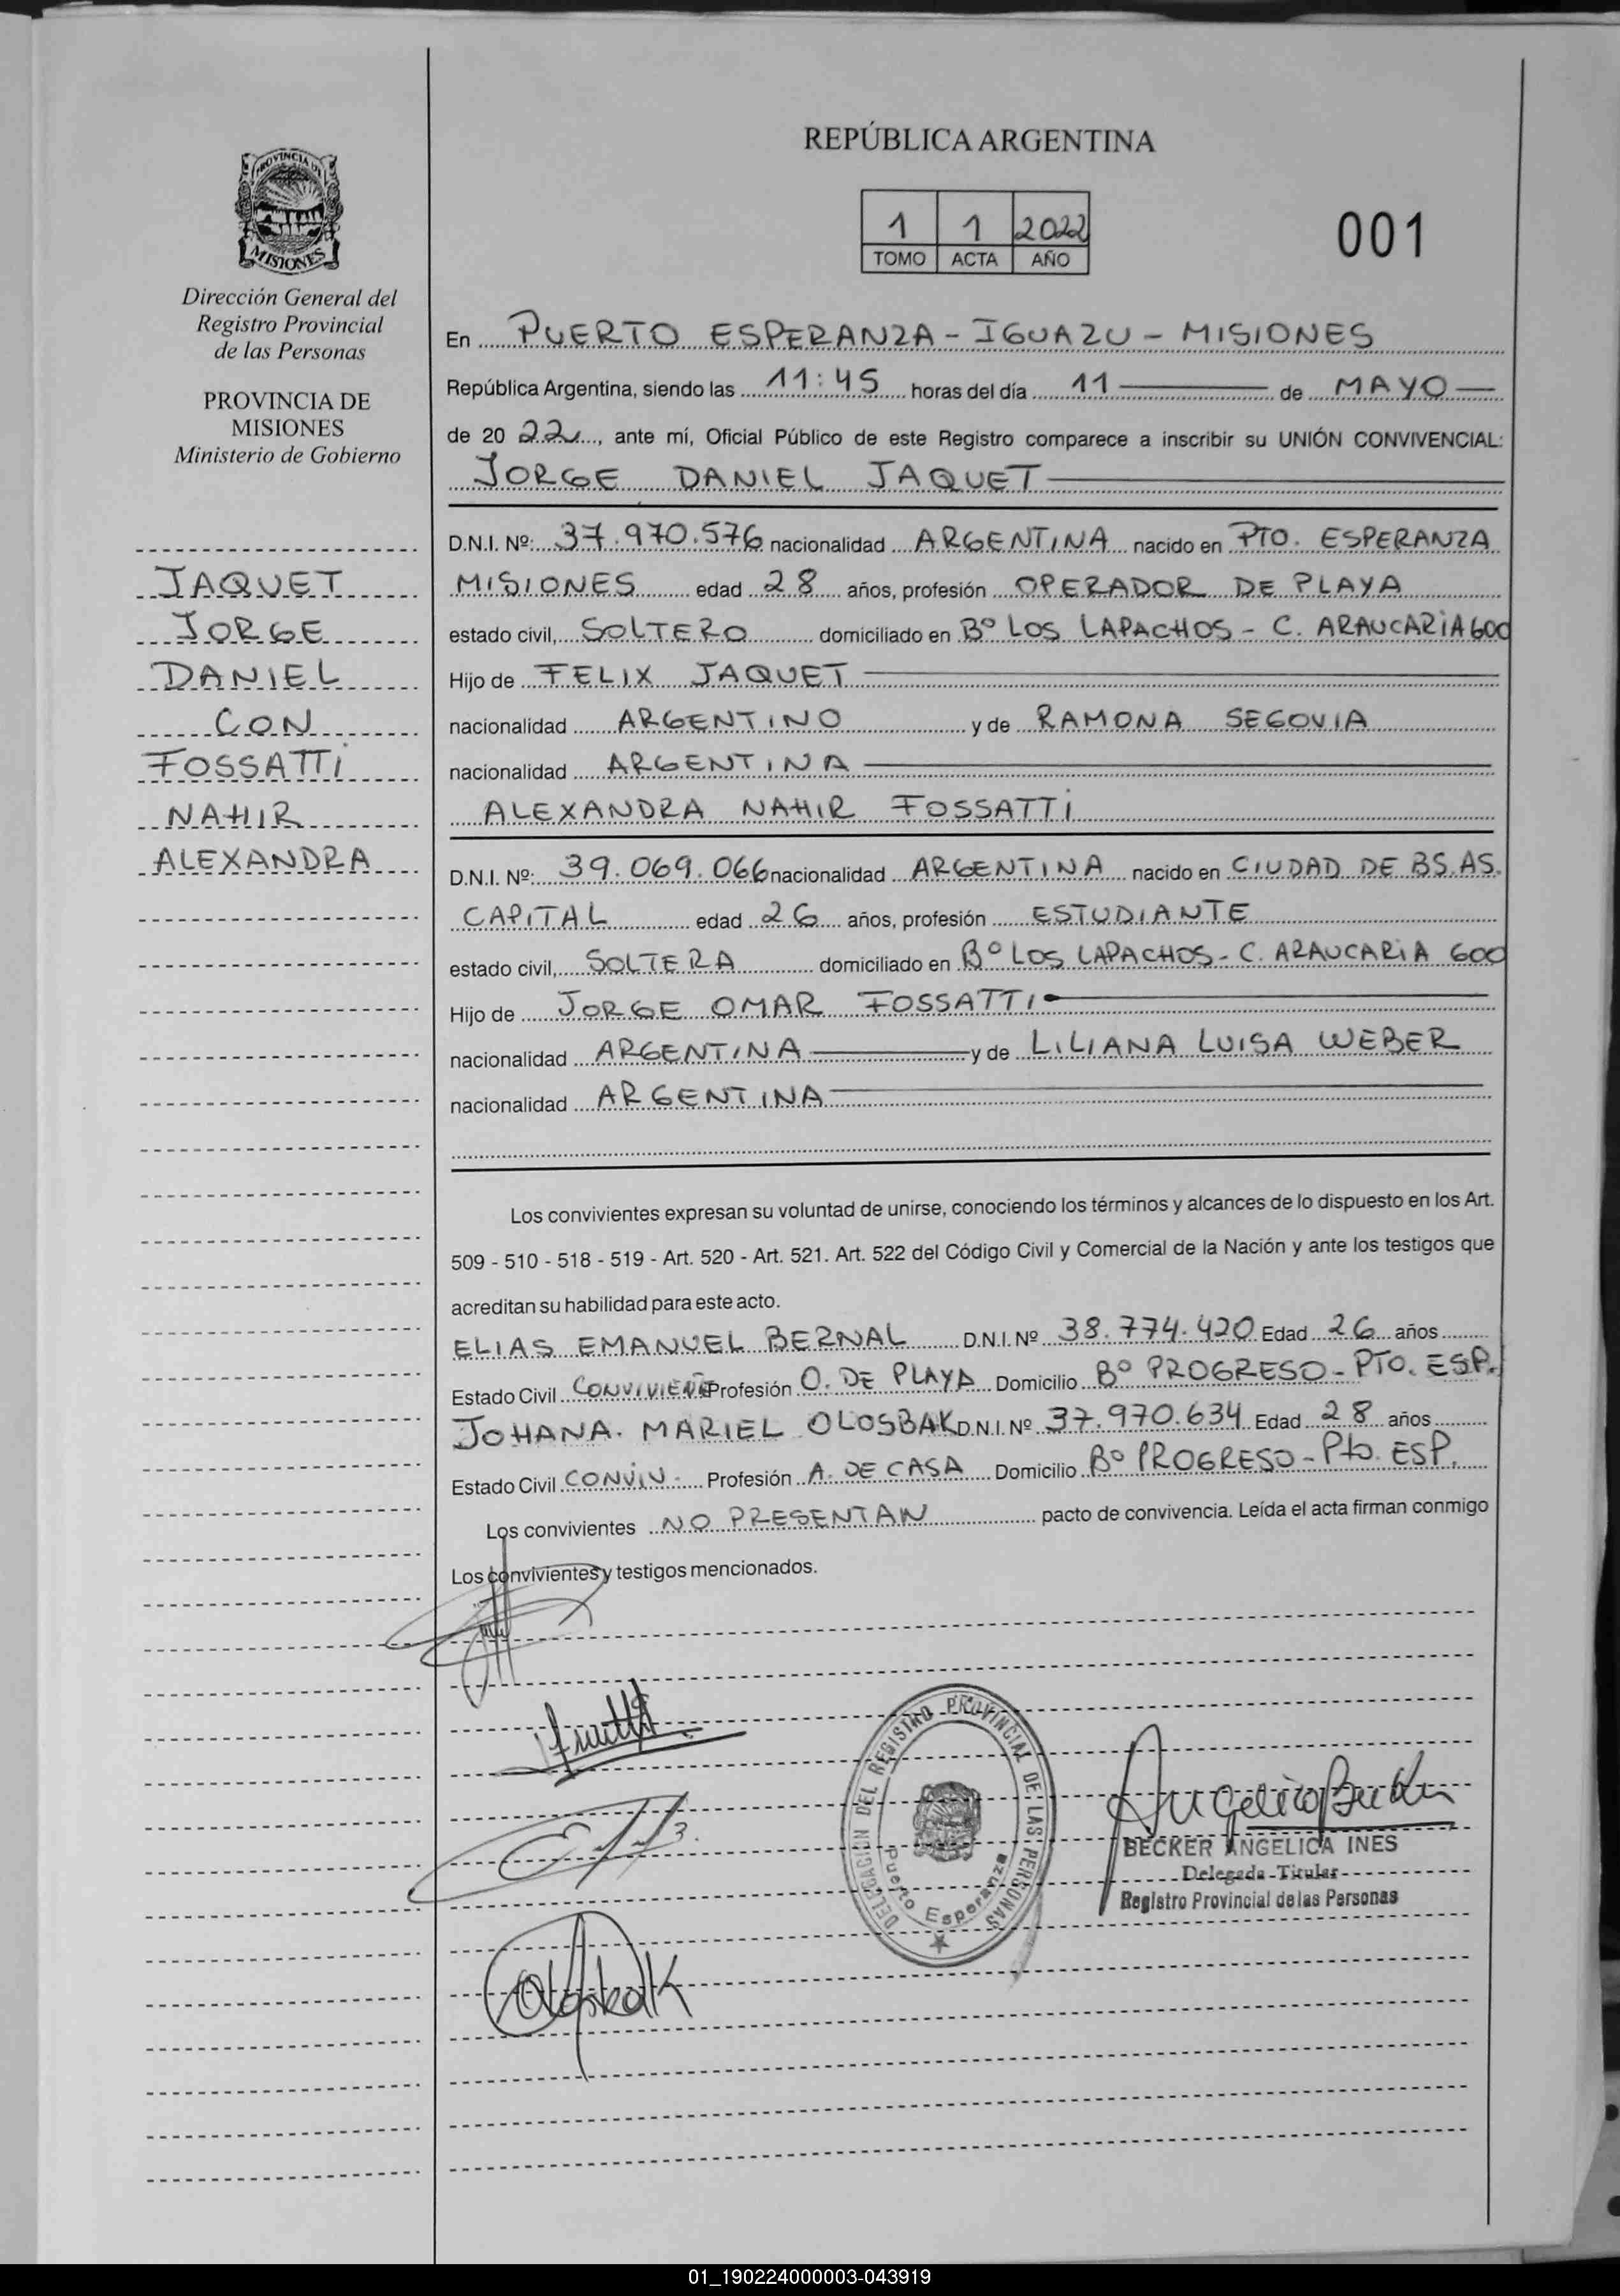 PROVINCIA DE
MISIONES
Dirección General del
Registro Provincial
de las Personas
PROVINCIA DE
MISIONES
Ministerio de Gobierno
JAQUET
JORGE
DANIEL
CON
FOSSATTI
NAHIR
ALEXANDRA
REPÚBLICA ARGENTINA
1 1 2022
TOMO ACTA AÑO
001
En PUERTO ESPERANZA - IGUAZU - MISIONES
República Argentina, siendo las 11:45 horas del día 11 de MAYO
de 20 22, ante mí, Oficial Público de este Registro comparece a inscribir su UNIÓN CONVIVENCIAL:
JORGE DANIEL JAQUET
D.N.I. Nº: 37.970.576 nacionalidad ARGENTINA nacido en PTO. ESPERANZA
MISIONES edad 28 años, profesión OPERADOR DE PLAYA
estado civil, SOLTERO domiciliado en Bº LOS LAPACHOS - C. ARAUCARIA 600
Hijo de FELIX JAQUET
nacionalidad ARGENTINO y de RAMONA SEGOVIA
nacionalidad ARGENTINA
ALEXANDRA NAHIR FOSSATTI
D.N.I. Nº: 39.069.066 nacionalidad ARGENTINA nacido en CIUDAD DE BS.AS.
CAPITAL edad 26 años, profesión ESTUDIANTE
estado civil, SOLTERA domiciliado en Bº LOS LAPACHOS - C. ARAUCARIA 600
Hijo de JORGE OMAR FOSSATTI
nacionalidad ARGENTINA y de LILIANA LUISA WEBER
nacionalidad ARGENTINA
Los convivientes expresan su voluntad de unirse, conociendo los términos y alcances de lo dispuesto en los Art.
509 - 510 - 518 - 519 - Art. 520 - Art. 521. Art. 522 del Código Civil y Comercial de la Nación y ante los testigos que
acreditan su habilidad para este acto.
ELIAS EMANUEL BERNAL D.N.I. Nº 38.774.420 Edad 26 años
Estado Civil CONVIVIENTE Profesión O. DE PLAYA Domicilio Bº PROGRESO - PTO. ESP.
JOHANA. MARIEL OLOSBAK D.N.I. Nº 37.970.634 Edad 28 años
Estado Civil CONVIV. Profesión A. DE CASA Domicilio Bº PROGRESO - Pto. ESP.
Los convivientes NO PRESENTAN pacto de convivencia. Leída el acta firman conmigo
Los convivientes y testigos mencionados.
DELEGACION DEL REGISTRO PROVINCIAL DE LAS PERSONAS
Puerto Esperanza
BECKER ANGELICA INES
Delegada Titular
Registro Provincial de las Personas
01_190224000003-043919